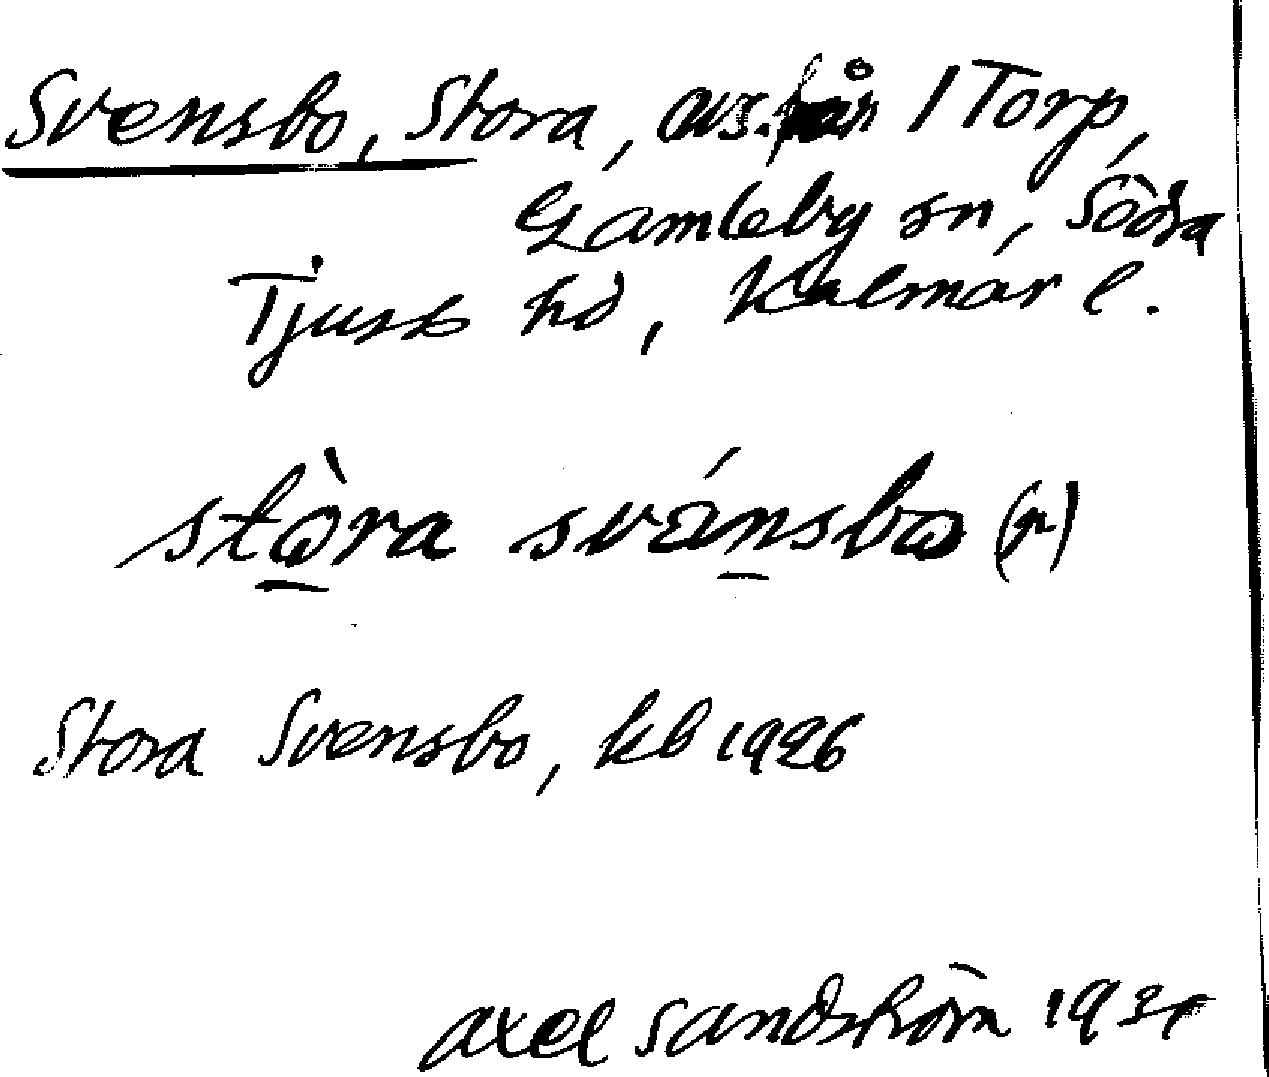 Svensbo, Stora, avs. från 1 Torp,
Gamleby sn, Södra
Tjust hd, Kalmar l.
stòra svánsbo (n)
Stora Svensbo, kb 1926
Axel Sandström